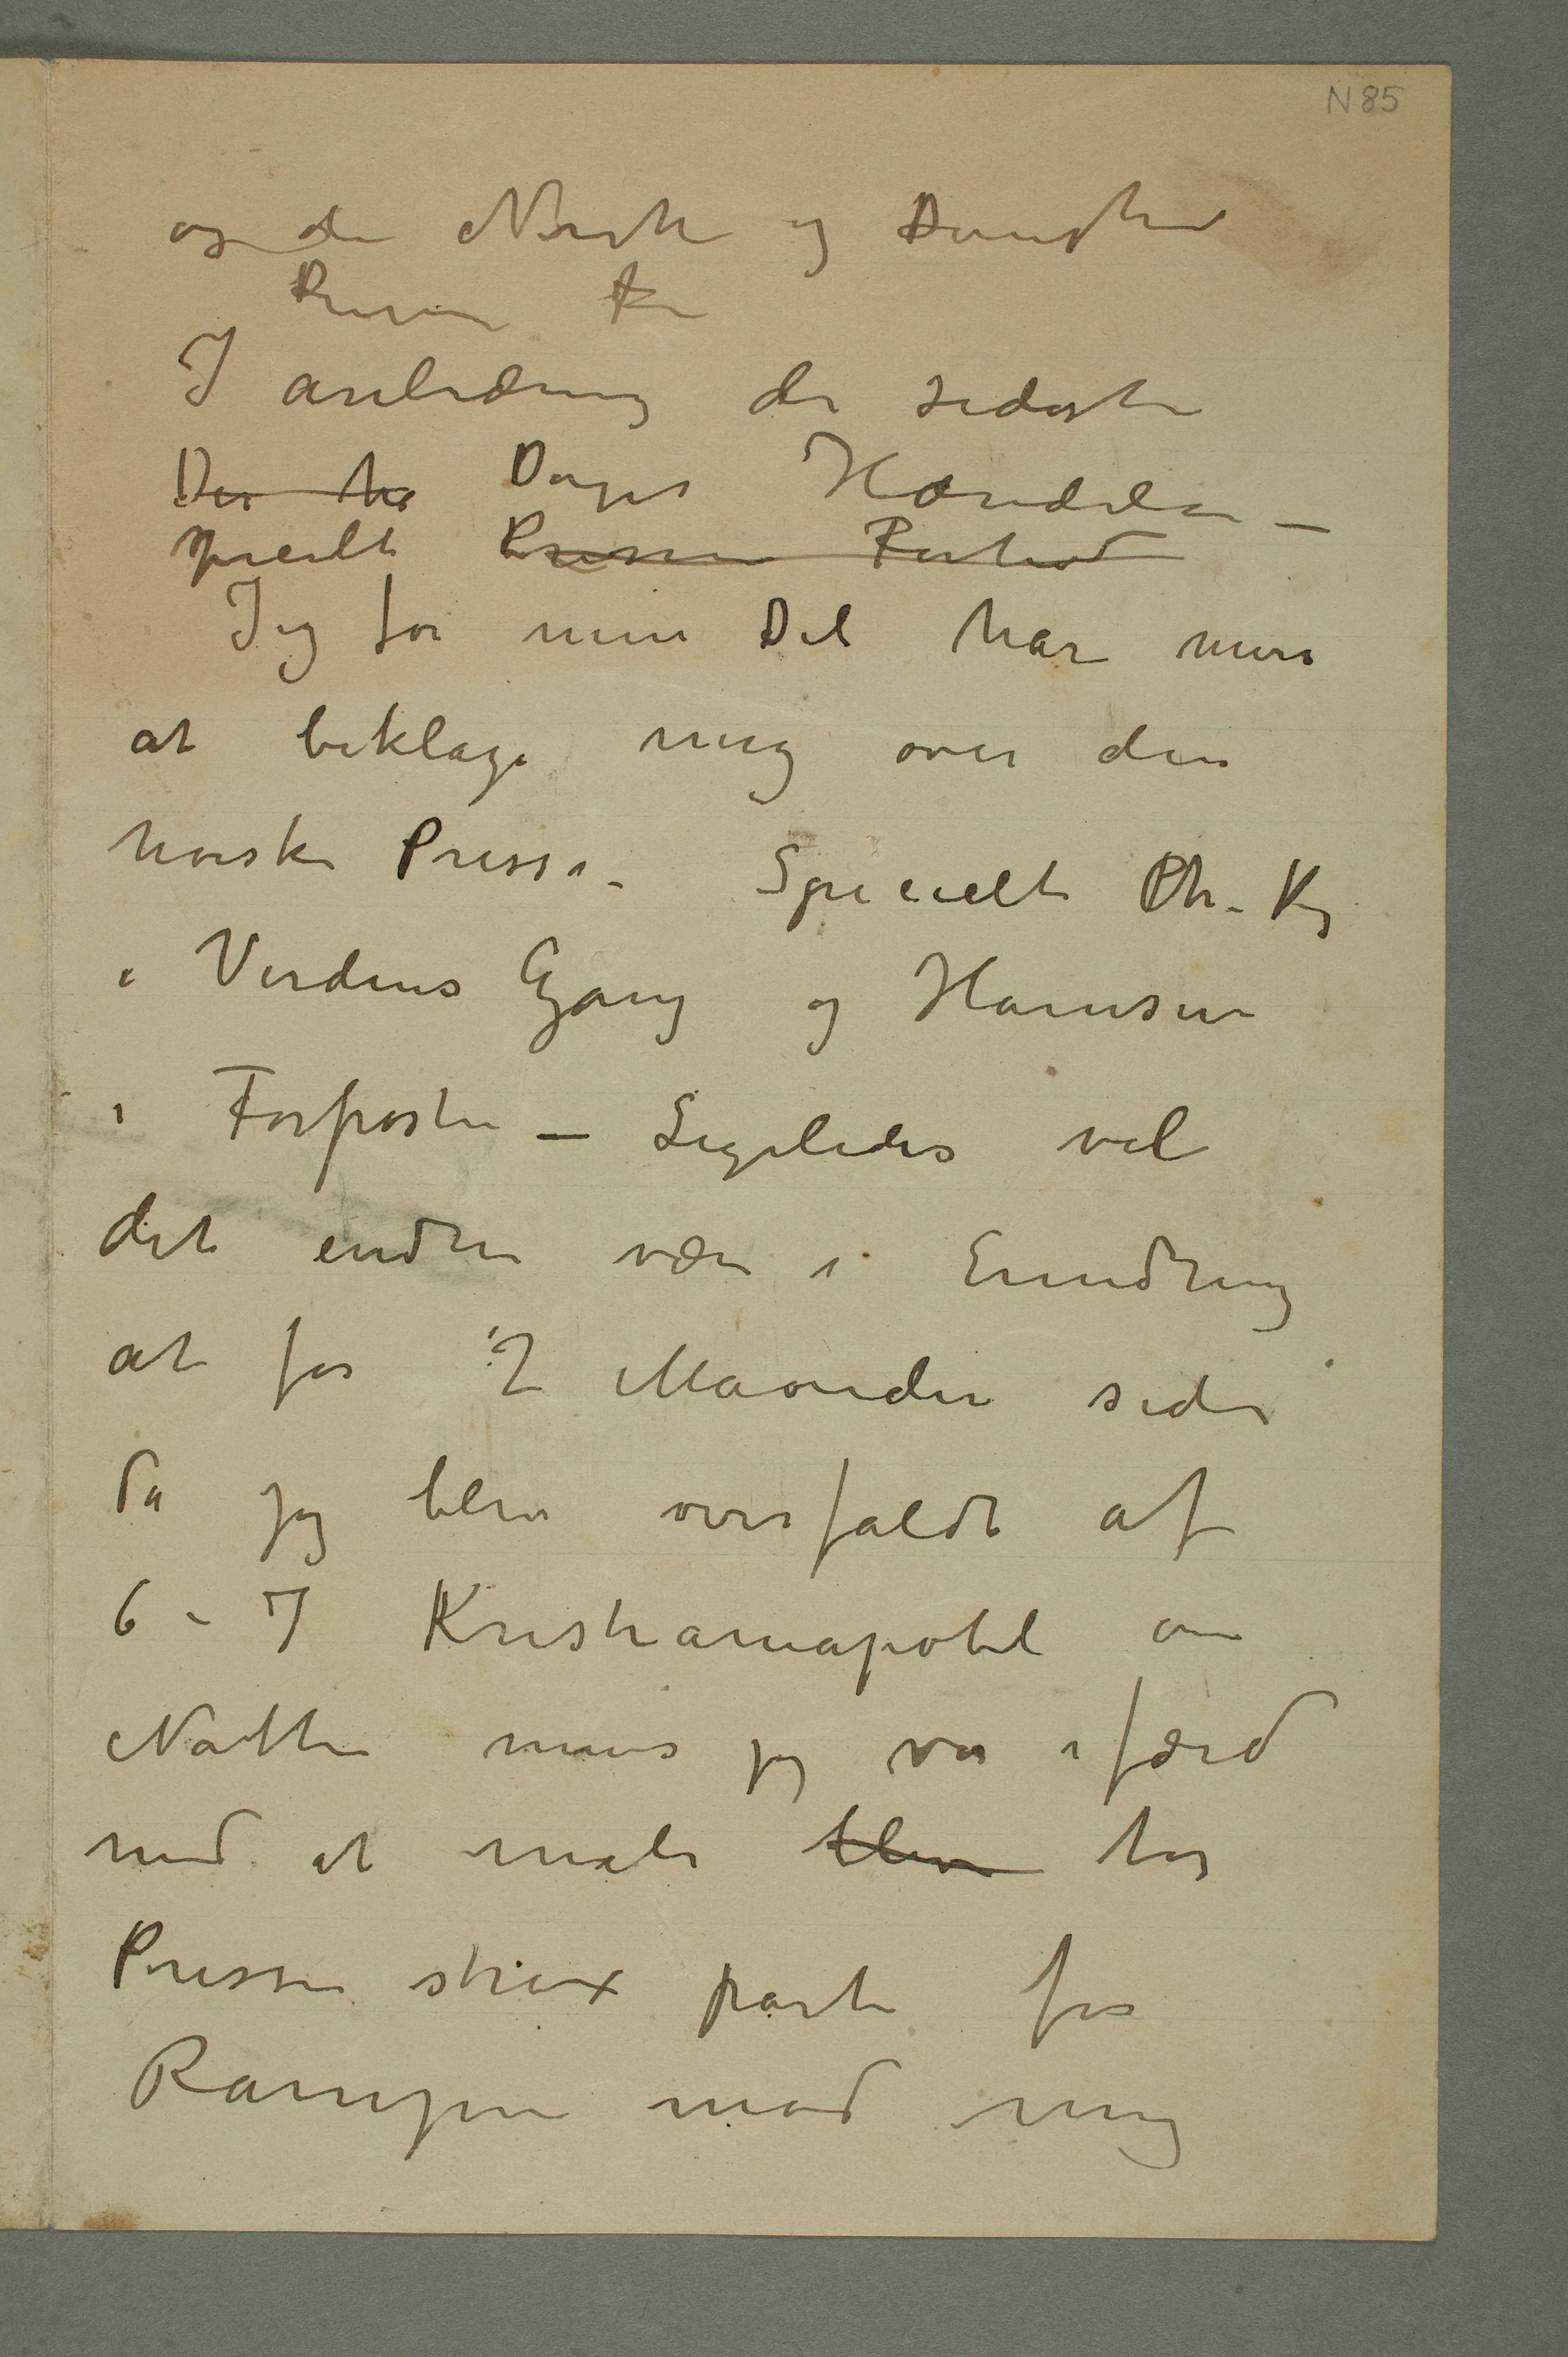 N 85
og de Norske og Danske
Presse
I anledning de sidste
Der ha Dages Hændelser –
specielt Pressens Forhold
Jeg for min Del har mere
at beklage mig over den
norske Presse. Specielt Chr. Kg
i Verdens Gang og Hansen
i Forposten – Ligeledes vil
det endnu være i Erindring
at for 2 Maaneder siden
da jeg blev overfaldt af
6 – 7 Kristianiapøbel om
Natten mens jeg var ifærd
med at male blev tog
Pressen strax parti for
Rampen mod mig